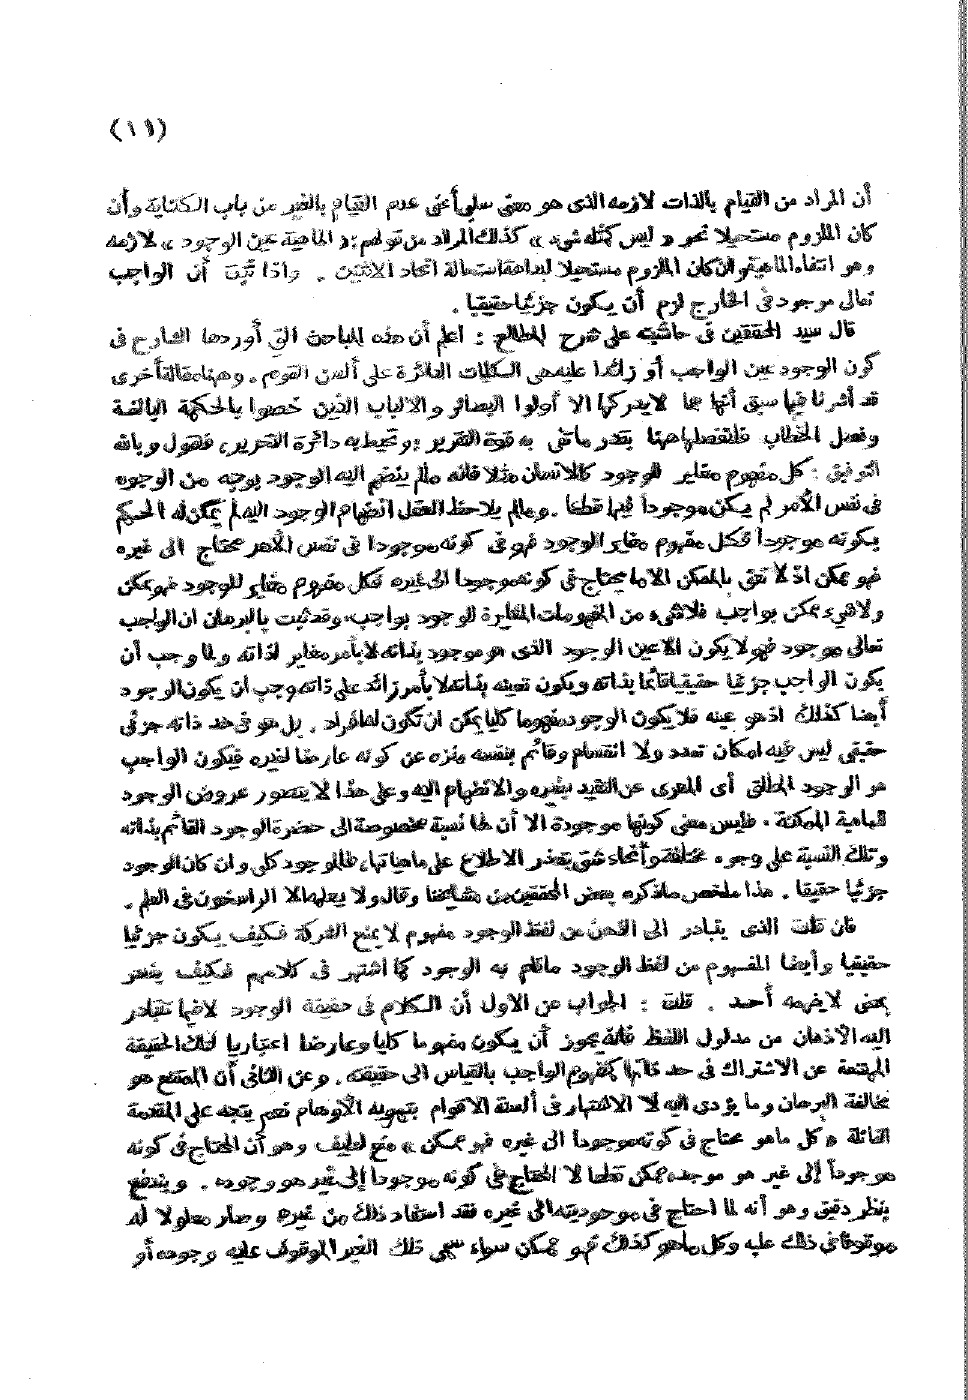 (١١)
أن المراد من القيام بالذات لازمه الذى هو معنى سلبى أعنى عدم القيام بالغير من باب الكناية وأن
كان الملزوم مستحيلا نحو « ليس كمثله شىء » كذلك المراد من قولهم : « الماهية عين الوجود » لازمه
وهو انتفاء الماهية وان كان الملزوم مستحيلا لبداهة استحالة اتحاد الاثنين . واذا ثبت أن الواجب
تعالى موجود فى الخارج لزم أن يكون جزئيا حقيقيا .
قال سيد المحققين فى حاشيته على شرح المطالع : اعلم أن هذه المباحث التى أوردها الشارح فى
كون الوجود عين الواجب أو زائدا عليه هى الكلمات الدائرة على ألسن القوم . وههنا مقالة أخرى
قد أشرنا فيما سبق أنها مما لا يدركها الا أولوا البصائر والالباب الذين خصوا بالحكمة البالغة
وفصل الخطاب فلنفصلها ههنا بقدر ما تفى به قوة التقرير ؛ وتحيط به دائرة التحرير ، فنقول وبالله
التوفيق : كل مفهوم مغاير للوجود كالانسان مثلا فانه مالم ينضم اليه الوجود بوجه من الوجوه
فى نفس الأمر لم يكن موجوداً فيها قطعا . ومالم يلاحظ العقل انضمام الوجود اليه لم يمكن له الحكم
بكونه موجوداً فكل مفهوم مغاير للوجود فهو فى كونه موجودا فى نفس الأمر محتاج الى غيره
فهو ممكن اذ لا نعنى بالممكن الا ما يحتاج فى كونه موجودا الى غيره فكل مفهوم مغاير للوجود فهو ممكن
ولا شىء ممكن بواجب فلا شىء من المفهومات المغايرة للوجود بواجب ، وقد ثبت بالبرهان ان الواجب
تعالى موجود فهو لا يكون الا عين الوجود الذى هو موجود بذاته لا بأمر مغاير لذاته ولما وجب أن
يكون الواجب جزئيا حقيقيا قائما بذاته ويكون تعينه بذاته لا بأمر زائد على ذاته وجب ان يكون الوجود
أيضا كذلك اذ هو عينه فلا يكون الوجود مفهوما كليا يمكن ان تكون له افراد . بل هو فى حد ذاته جزئى
حقيقى ليس فيه امكان تعدد ولا انقسام وقائم بنفسه منزه عن كونه عارضا لغيره فيكون الواجب
هو الوجود المطلق أى المعرى عن التقيد بغيره والانضمام اليه وعلى هذا لا يتصور عروض الوجود
للماهية الممكنة . فليس معنى كونها موجودة الا أن لها نسبة مخصوصة الى حضرة الوجود القائم بذاته
وتلك النسبة على وجوه مختلفة وأنحاء شتى يتعذر الاطلاع على ماهياتها ، فالموجود كلى وان كان الوجود
جزئيا حقيقا . هذا ملخص ما ذكره بعض المحققين من مشايخنا وقال ولا يعلمه الا الراسخون فى العلم .
فان قلت الذى يتبادر الى الذهن من لفظ الوجود مفهوم لا يمنع الشركة فكيف يكون جزئيا
حقيقيا وأيضا المفهوم من لفظ الوجود ماقام به الوجود كما اشتهر فى كلامهم فكيف يفسر
بمعنى لا يفهمه أحد . قلت : الجواب عن الاول أن الكلام فى حقيقة الوجود لا فيما تتبادر
اليه الأذهان من مدلول اللفظ فانه يجوز أن يكون مفهوما كليا وعارضا اعتباريا لتلك الحقيقة
الممتنعة عن الاشتراك فى حد ذاتها كمفهوم الواجب بالقياس الى حقيقته . وعن الثانى أن الممتنع هو
مخالفة البرهان وما يؤدى اليه لا الاشتهار فى ألسنة الاقوام بتمويه الأوهام نعم يتجه على المقدمة
القائلة « كل ماهو محتاج فى كونه موجوداً الى غيره فهو ممكن » منع لطيف وهو أن المحتاج فى كونه
موجوداً إلى غير هو موجده ممكن قطعا لا المحتاج فى كونه موجودا إلى غير هو وجوده . ويندفع
بنظر دقيق وهو أنه لما احتاج فى موجوديته الى غيره فقد استفاد ذلك من غيره وصار معلولا له
موقوفا فى ذلك عليه وكل ماهو كذلك فهو ممكن سواء سمى ذلك الغير الموقوف عليه وجوده أو